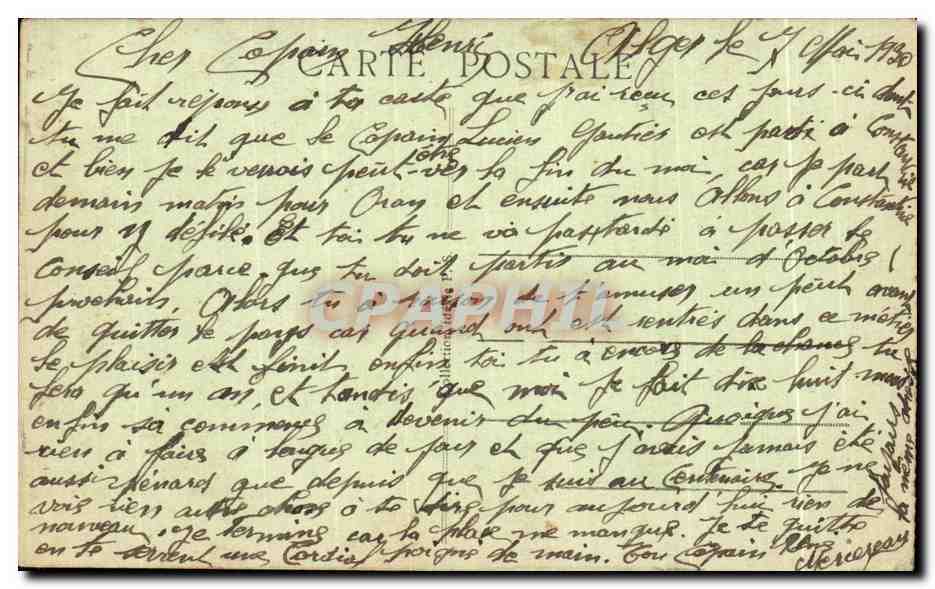 Cher Copain Henri Alger le 7 Mai 1930
CARTE POSTALE
Je fait réponse à ta carte que j'ai reçu ces jours-ci dont
tu me dit que le Copain Lucien Gautier est parti à Constantine
et bien je le verrais peut-être vers la fin du moi car je part
demain matin pour Oran et ensuite nous Allons à Constantine
pour y défilé. Et toi tu ne va pas tarde à passer le
Conseil parce que tu doit partir au moi d'Octobre
prochain. Alors tu à raison de t'amuser un peut avant
de quitter le pays car quand ont est rentrés dans ce métier
le plaisir est finit enfin toi tu à encore de la chance tu
fera qu'un an, et tandis que moi je fait dix huit mois
enfin sa commence à devenir du peu. Quoique j'ai
rien à faire à longue de jour et que j'avais jamais été
aussi pénard que depuis que je suis au Centenaire. Je ne
vois rien autre chose à te dire pour aujourd'hui rien de
nouveau. Je termine car la place me manque. Je te quitte
en te serrent une Cordial poigne de main. Ton Copain René
Mercereau
la même adresse
CPAPHIL